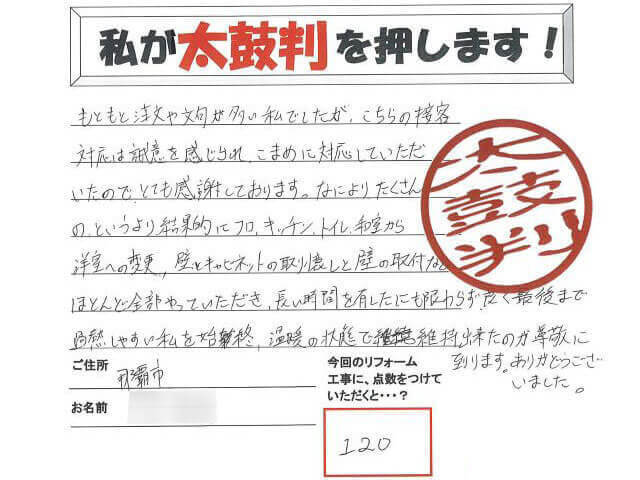 私が太鼓判を押します!
もともと注文や文句が多い私でしたが、こちらの接客
対応は誠意を感じられ、こまめに対応していただ
いたので、とても感謝しております。なによりたくさん
の、というより結果的にフロ、キッチン、トイレ、和室から
洋室への変更、壁とキャビネットの取り壊しと壁の取付など
ほとんど全部やっていただき、長い時間を有したにも限わらず、良く最後まで
過熱しやすい私を始終、温暖の状態で維持出来たのが尊敬に
到ります。ありがとうござ
いました。
太鼓判
ご住所
那覇市
お名前
今回のリフォーム
工事に、点数をつけて
いただくと・・・?
120